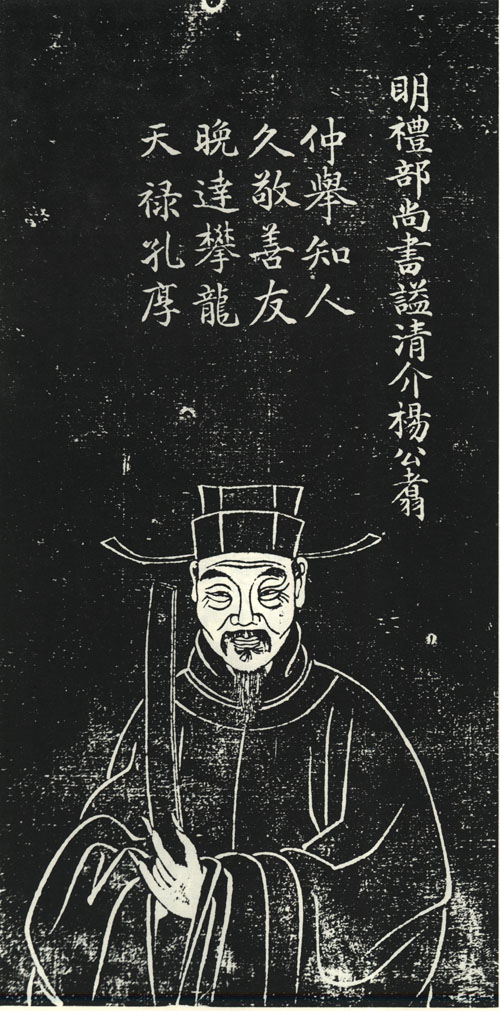 明禮部尚書謚清介楊公翥
仲舉知人
久敬善友
晚達攀龍
天禄孔厚